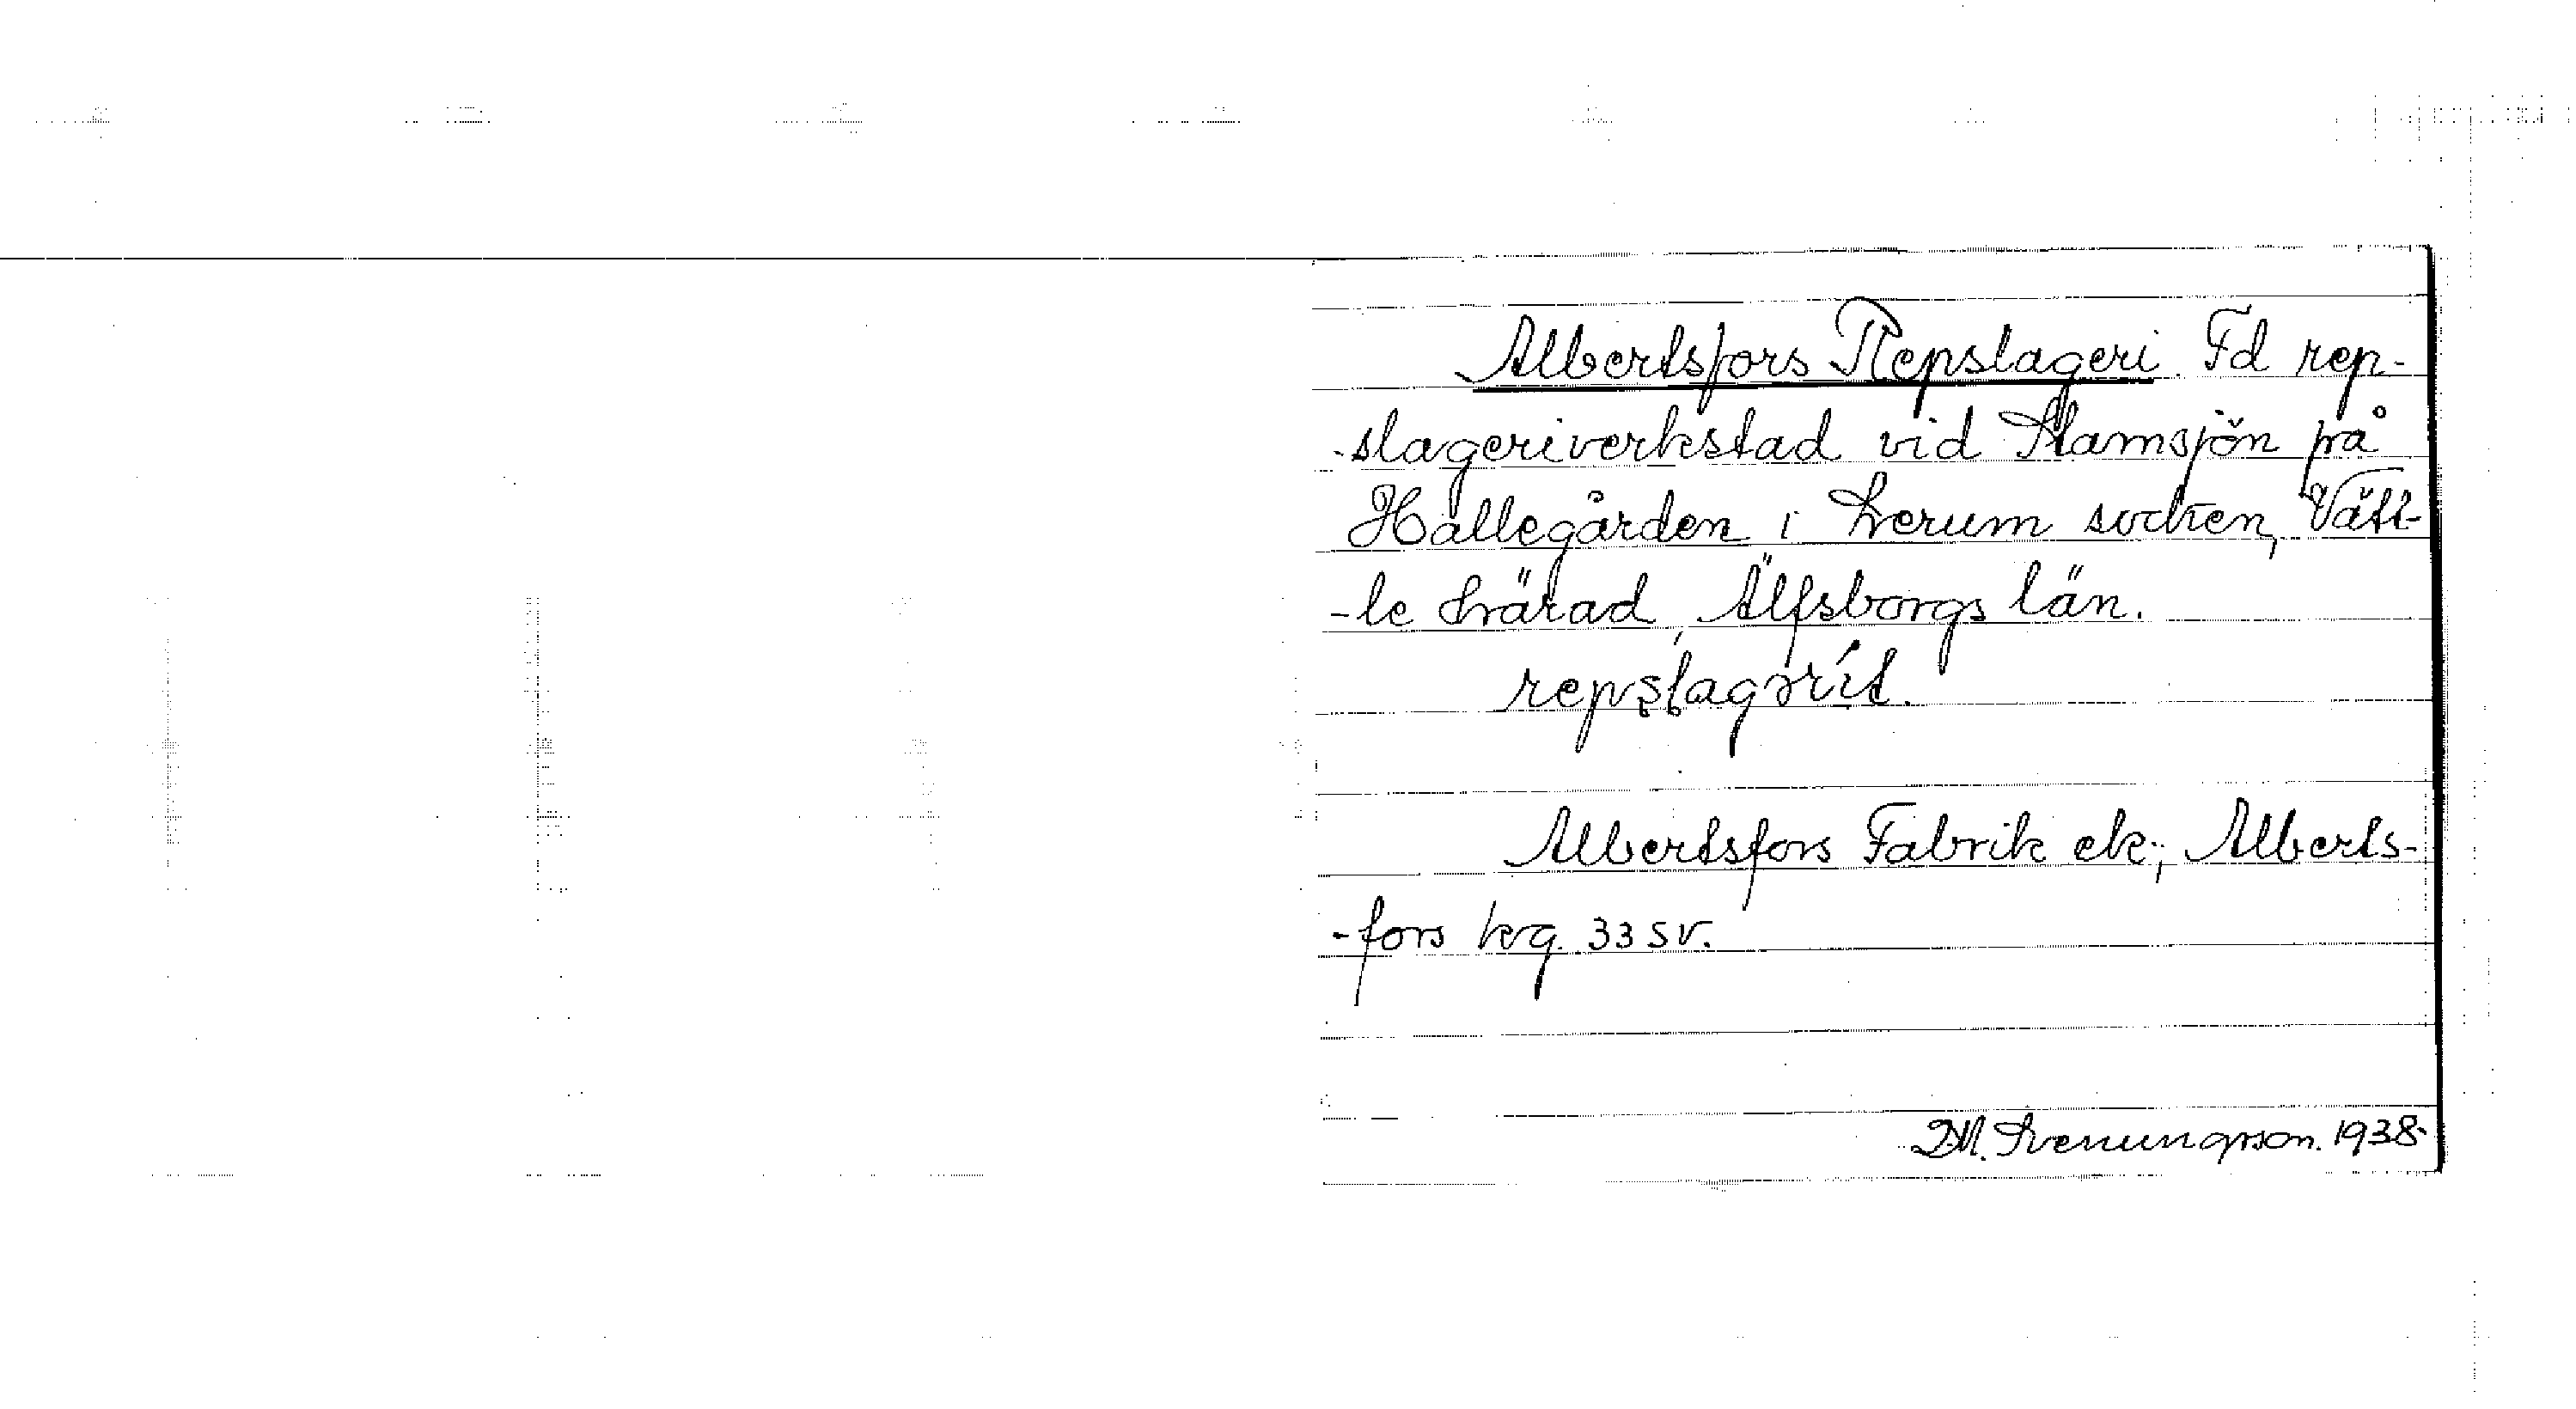 Albertsfors Repslageri. Fd rep-
-slageriverkstad vid Stamsjön på
Hallegården i Lerum socken, Vätt-
-le härad, Älfsborgs län.
repslagərit.
Albertsfors Fabrik ek.; Alberts-
-fors krg. 33 SV.
D.M. Svenungsson. 1938.